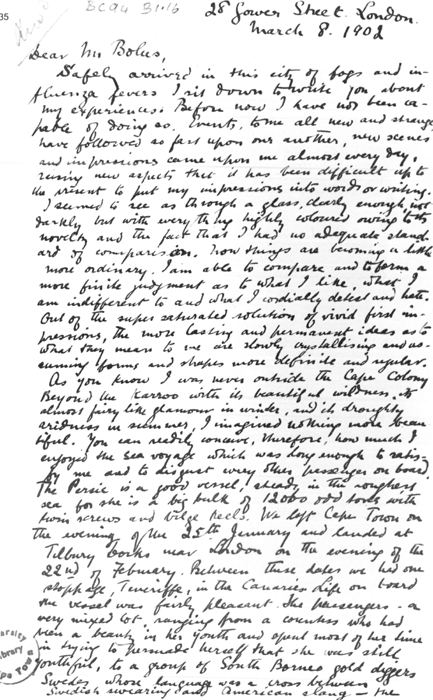 35
BC 94 31.16
28 Gower Street. London.
March 8. 1902
Dear Mr Bolus,
Safely arrived in this city of fogs and in-
fluenza fevers I sit down to write you about
my experiences. Before now I have not been ca-
pable of doing so. Events, to me all new and strange
have followed so fast upon one another, new scenes
and impressions came upon me almost every day,
raising new aspects that it has been difficult up to
the present to put my impressions into words or writing.
I seemed to see as through a glass, clearly enough, not
darkly but with everything highly coloured owing to its
novelty and the fact that I had no adequate stand-
ard of comparison. Now things are becoming a little
more ordinary. I am able to compare and to form a
more finite judgment as to what I like, what I
am indifferent to and what I cordially detest and hate.
Out of the super saturated solution of vivid first im-
pressions, the more lasting and permanent ideas as to
what they mean to me are slowly crystallising and as-
suming forms and shapes more definite and regular.
As you know I was never outside the Cape Colony
Beyond the Karroo with its beautiful wildness, its
almost fairy like glamour in winter, and its droughty
aridness in summer, I imagined nothing more beau
tiful. You can readily conceive, therefore, how much I
enjoyed the sea voyage which was long enough to satis-
fy me and to disgust every other passenger on board.
The Persic is a good vessel, steady in the roughest
sea for she is a big bulk of 12000 odd tons with
twin screws and bilge keels. We left Cape Town on
the evening of the 25th January and landed at
Tilbury Docks near London on the evening of the
22nd of February. Between these dates we had one
stoppage, Teneriffe, in the Canaries. Life on board
the vessel was fairly pleasant. The passengers - a
very mixed lot, ranging from a countess who had
been a beauty in her youth and spent most of her time
in trying to persuade herself that she was still
youthful, to a group of South Borneo gold diggers
Swedes whose language was a cross between
Swedish swearing and American slang - the